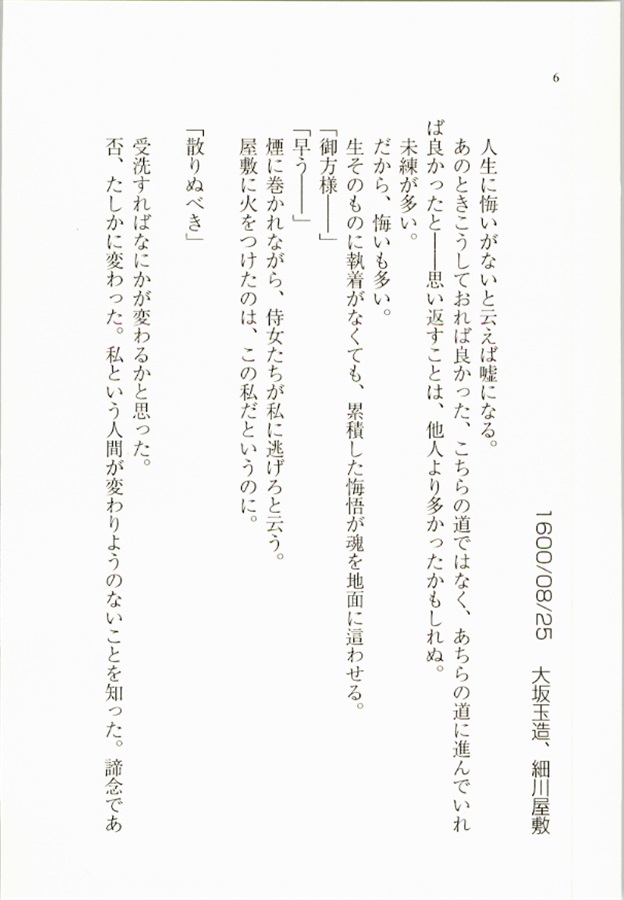 6
1600/08/25　大坂玉造、細川屋敷
人生に悔いがないと云えば嘘になる。
あのときこうしておれば良かった、こちらの道ではなく、あちらの道に進んでいれ
ば良かったと――思い返すことは、他人より多かったかもしれぬ。
未練が多い。
だから、悔いも多い。
生そのものに執着がなくても、累積した悔悟が魂を地面に這わせる。
「御方様――」
「早う――」
煙に巻かれながら、侍女たちが私に逃げろと云う。
屋敷に火をつけたのは、この私だというのに。
「散りぬべき」
受洗すればなにかが変わるかと思った。
否、たしかに変わった。私という人間が変わりようのないことを知った。諦念であ